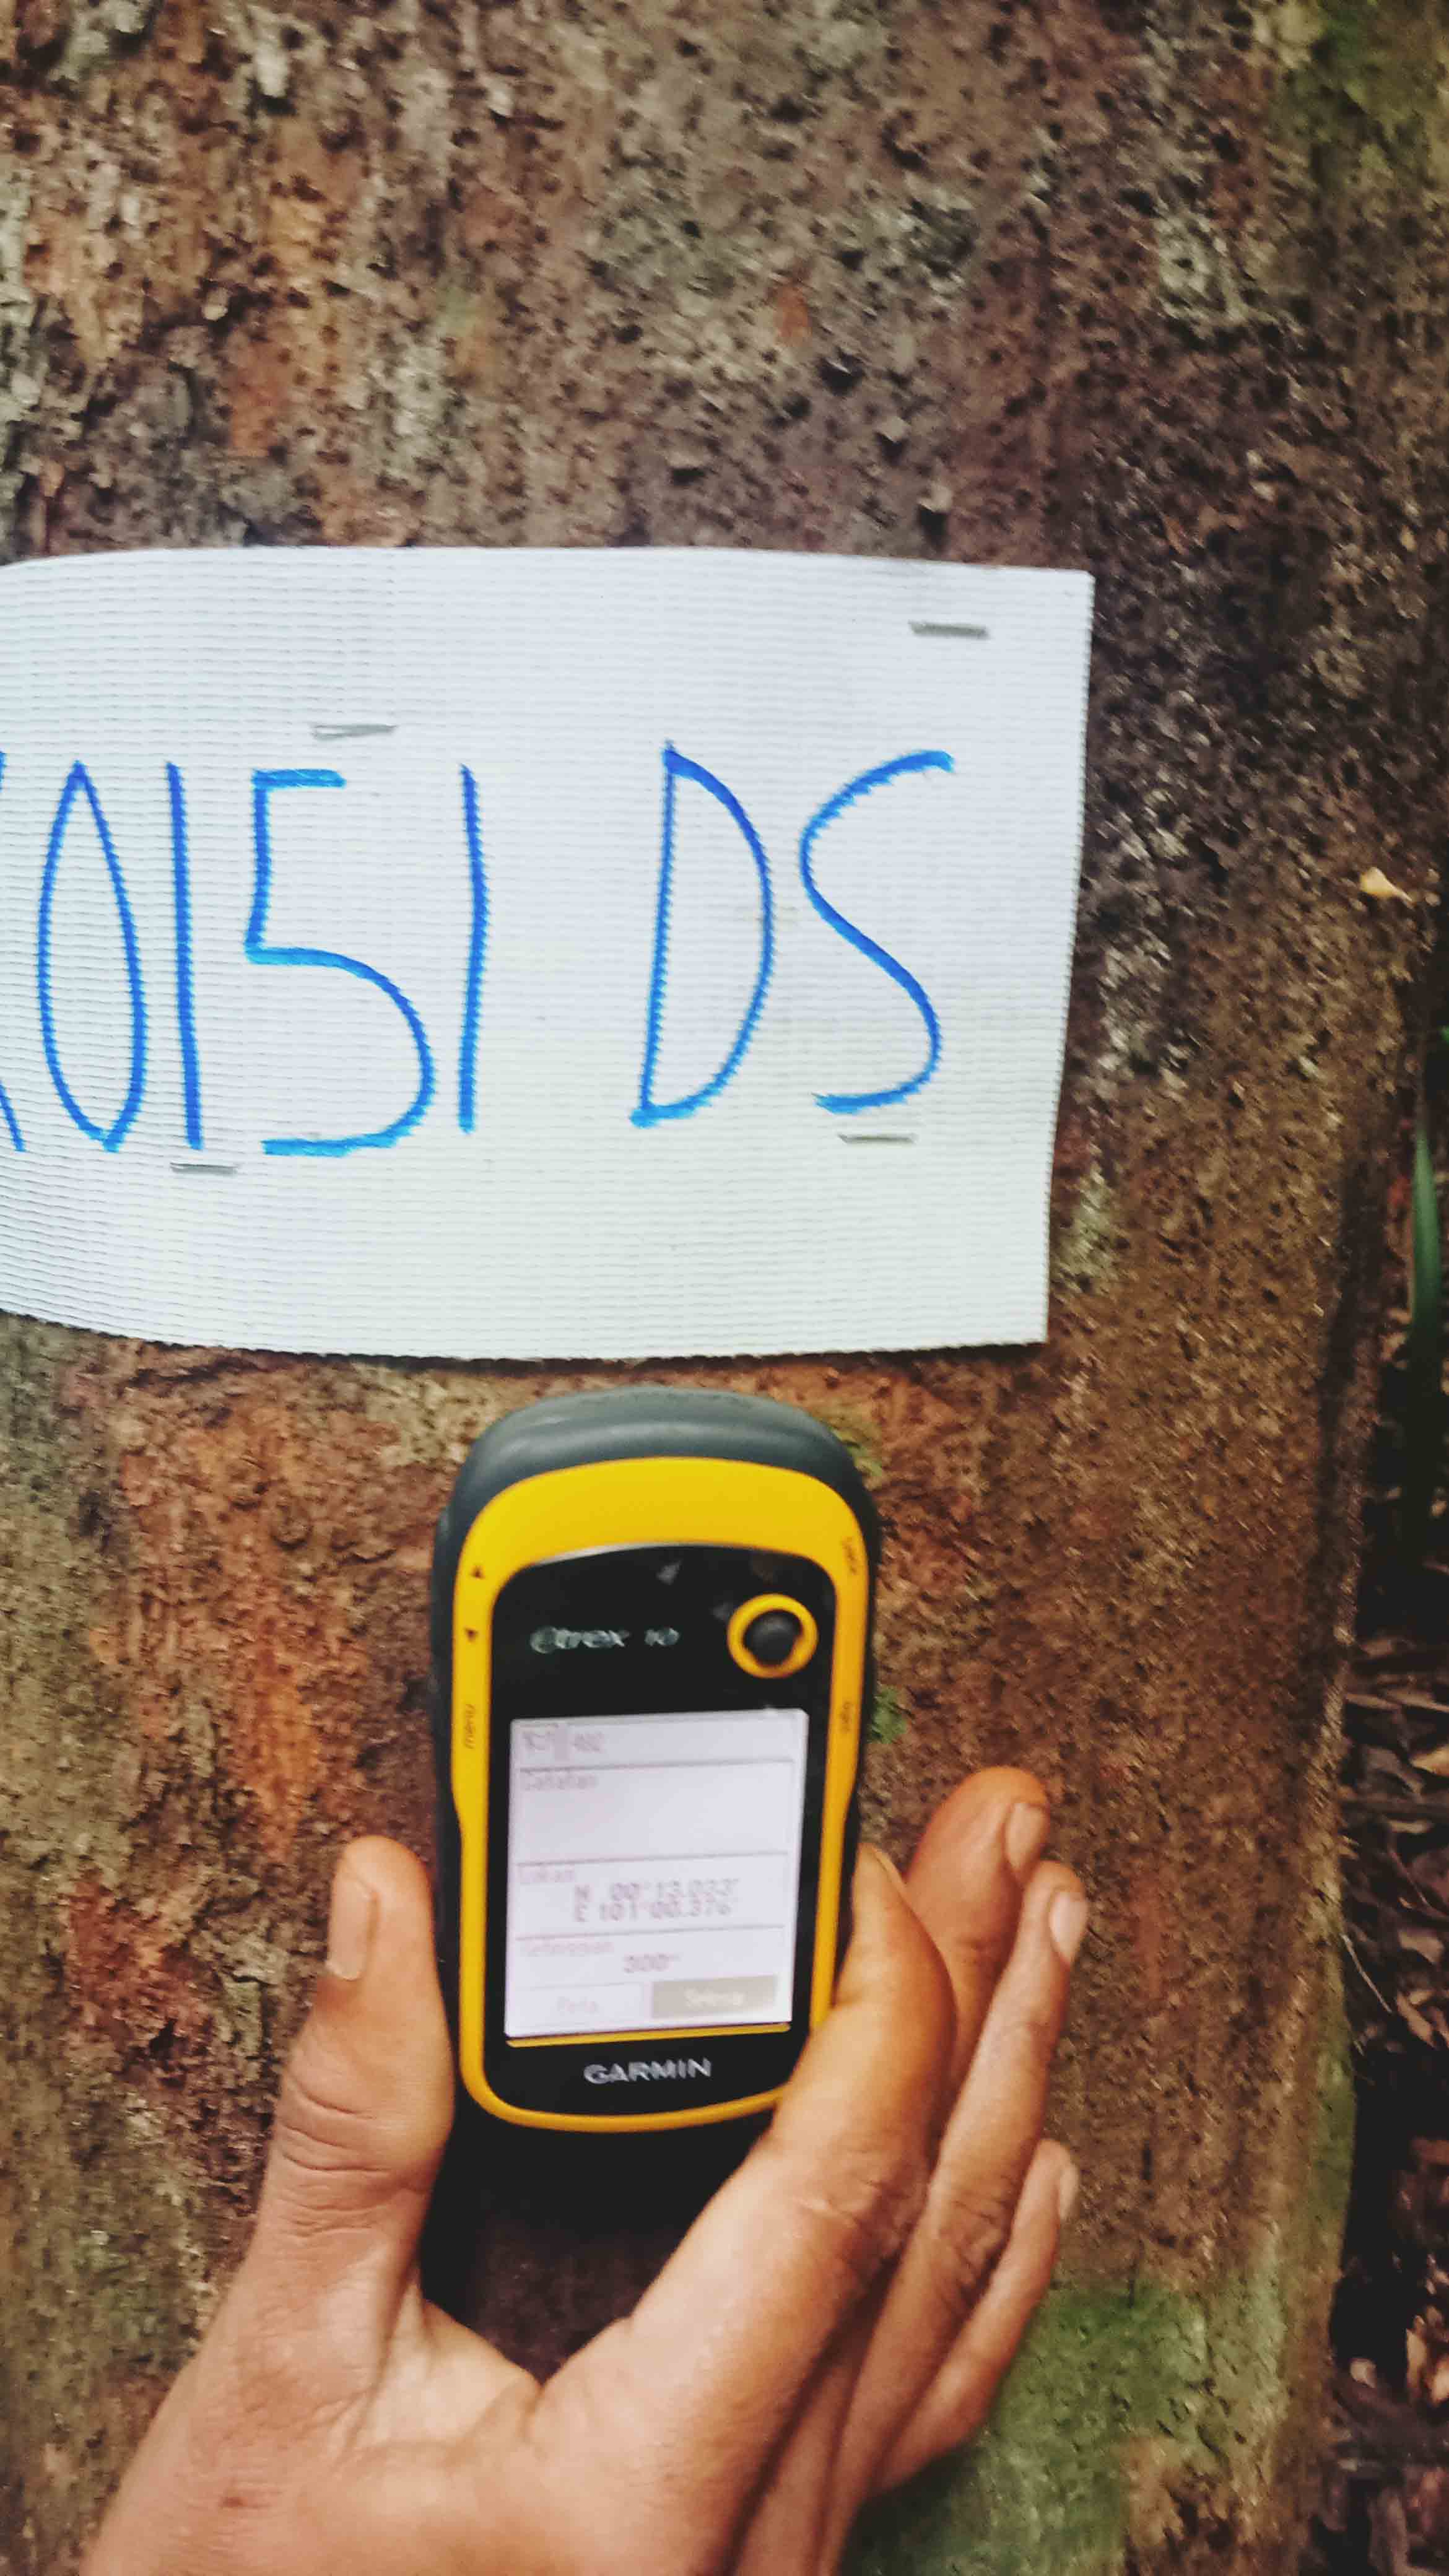 0151 DS
eTrex 10
menu
482
Catatan
Lokasi
N 00°13.033'
E 101°00.376'
Ketinggian
300m
Peta Selesai
GARMIN